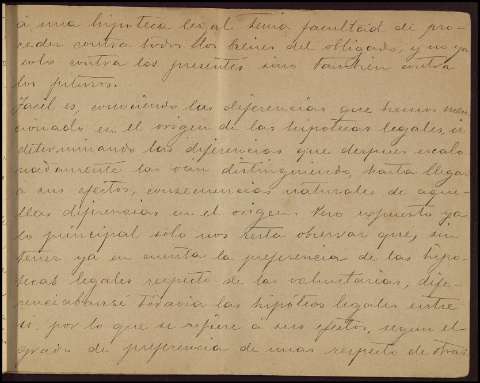 á una hipoteca legal tenia facultad de pro-
ceder contra todos los bienes del obligado, y no ya
solo contra los presentes sino tambien contra
los futuros.
Facil es, conociendo las diferencias que hemos men-
cionado en el origen de las hipotecas legales, ir
determinando las diferencias que despues escalo-
nadamente las van distinguiendo, hasta llegar
a sus efectos, consecuencias naturales de aque-
llas diferencias en el origen. Pero expuesto ya
lo principal solo nos resta observar que, sin
tener ya en cuenta la preferencia de las hipo-
tecas legales respecto de las voluntarias, dife-
renciabanse todavia las hipotecas legales entre
si, por lo que se refiere á sus efectos, segun el
grado de preferencia de unas respecto de otras